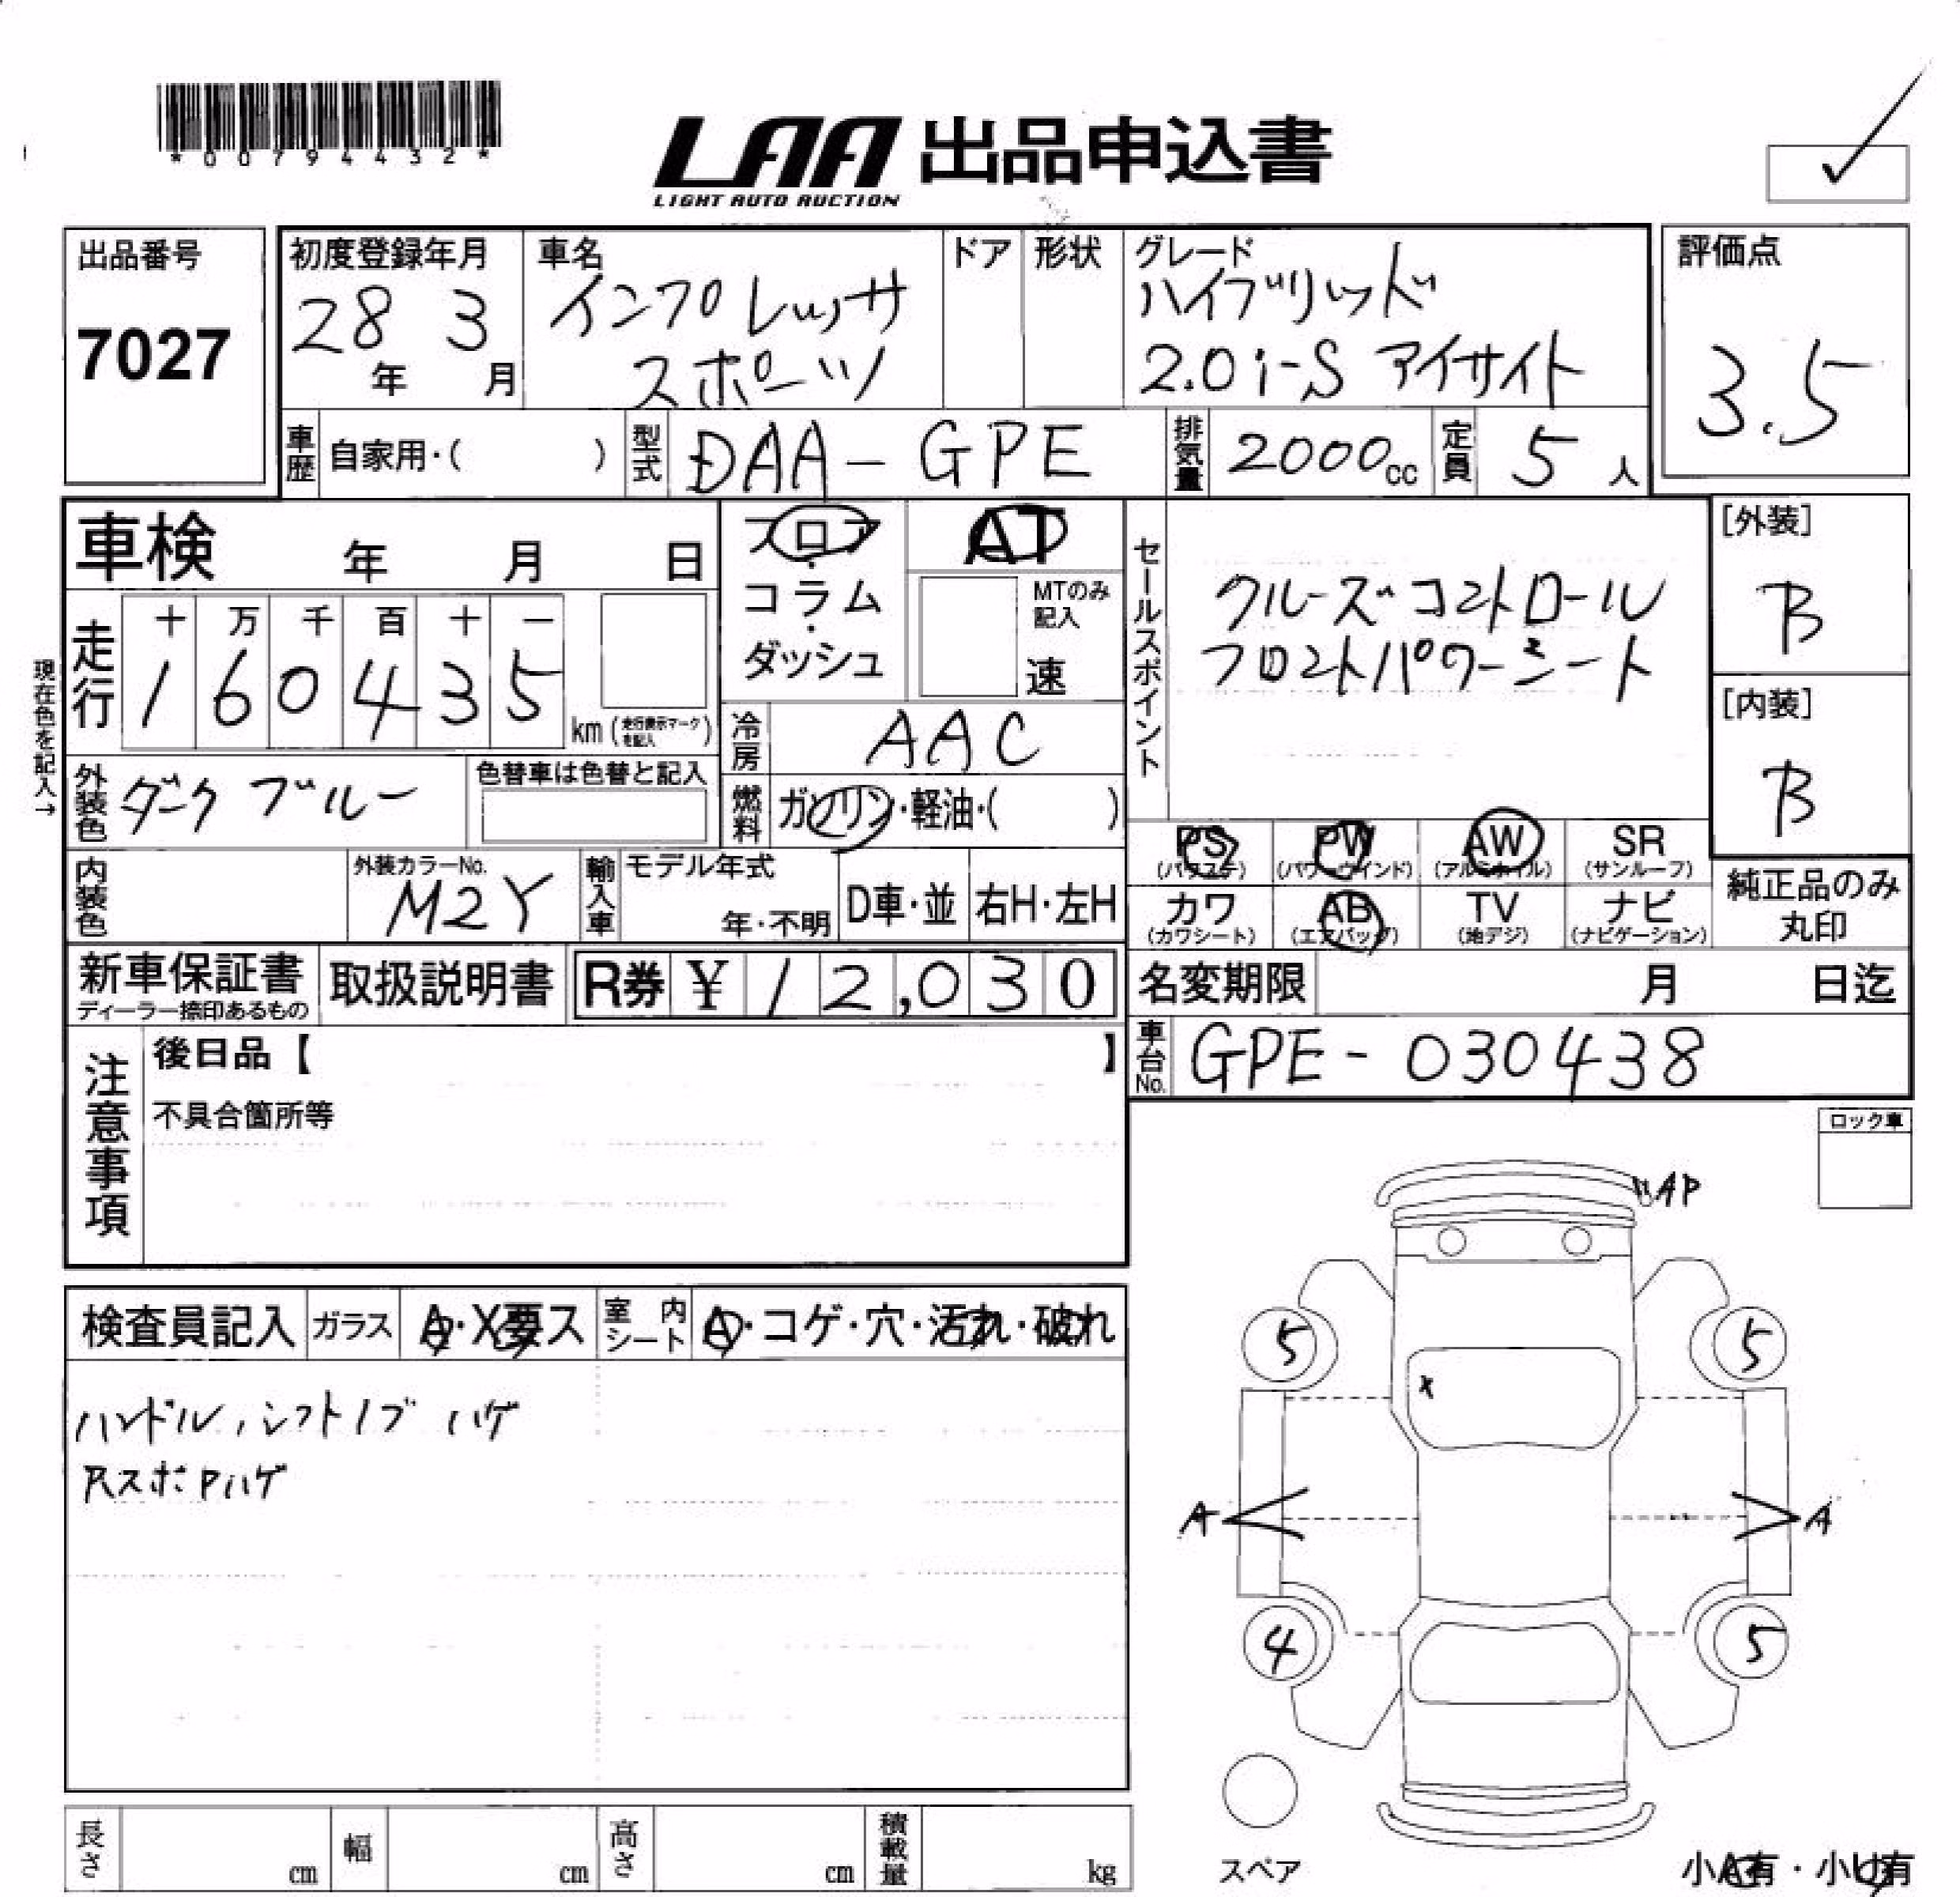 *00794432*
LAA 出品申込書
LIGHT AUTO AUCTION
出品番号
7027
初度登録年月
28年 3月
車名
インプレッサ
スポーツ
ドア
形状
グレード
ハイブリッド
2.0i-S アイサイト
評価点
3.5
車歴 自家用・( )
型式 DAA-GPE
排気量 2000cc
定員 5人
車検 年 月 日
フロア
・
コラム
・
ダッシュ
AT
MTのみ
記入
速
セールスポイント
クルーズコントロール
フロントパワーシート
[外装]
B
[内装]
B
現在色を記入→
走行
十 万 千 百 十 一
1 6 0 4 3 5
km (走行表示マークを記入)
冷房 AAC
外装色 ダークブルー
色替車は色替と記入
燃料 ガソリン・軽油・( )
PS (パワステ)
PW (パワーウインド)
AW (アルミホイル)
SR (サンルーフ)
カワ (カワシート)
AB (エアバッグ)
TV (地デジ)
ナビ (ナビゲーション)
純正品のみ
丸印
内装色
外装カラーNo.
M2Y
輸入車
モデル年式
年・不明
D車・並
右H・左H
新車保証書
ディーラー捺印あるもの
取扱説明書
R券 ¥ 12,030
名変期限 月 日迄
車台No. GPE-030438
注意事項
後日品【 】
不具合箇所等
ロック車
AP
検査員記入
ガラス A・X要ス
室内シート A・コゲ・穴・汚れ・破れ
ハンドル、シフトノブ ハゲ
5
5
x
A
A
4
5
スペア
長さ cm
幅 cm
高さ cm
積載量 kg
小A有・小U有